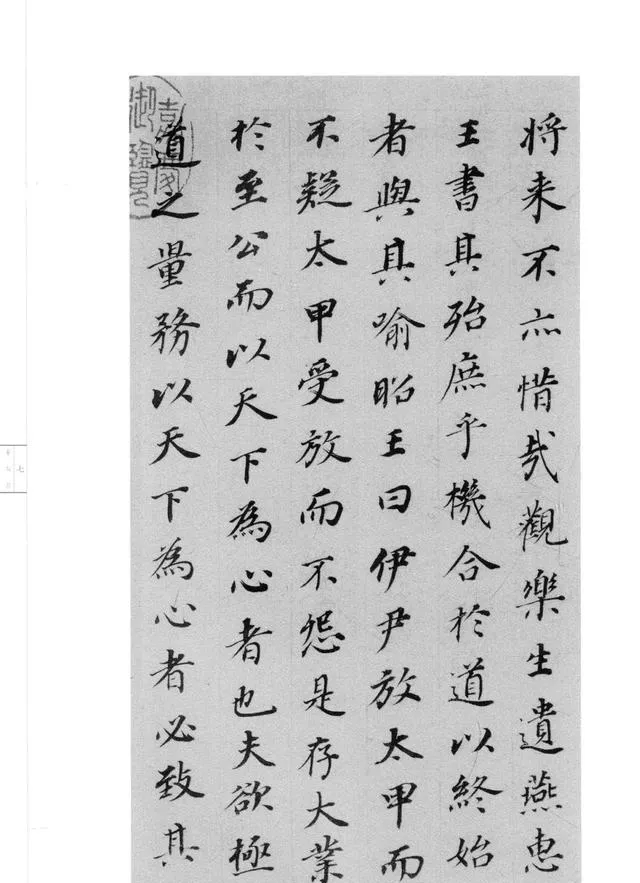 将来不亦惜哉觀樂生遺燕惠
王書其殆庶乎機合於道以終始
者與其喻昭王曰伊尹放太甲而
不疑太甲受放而不怨是存大業
於至公而以天下為心者也夫欲極
道之量務以天下為心者必致其